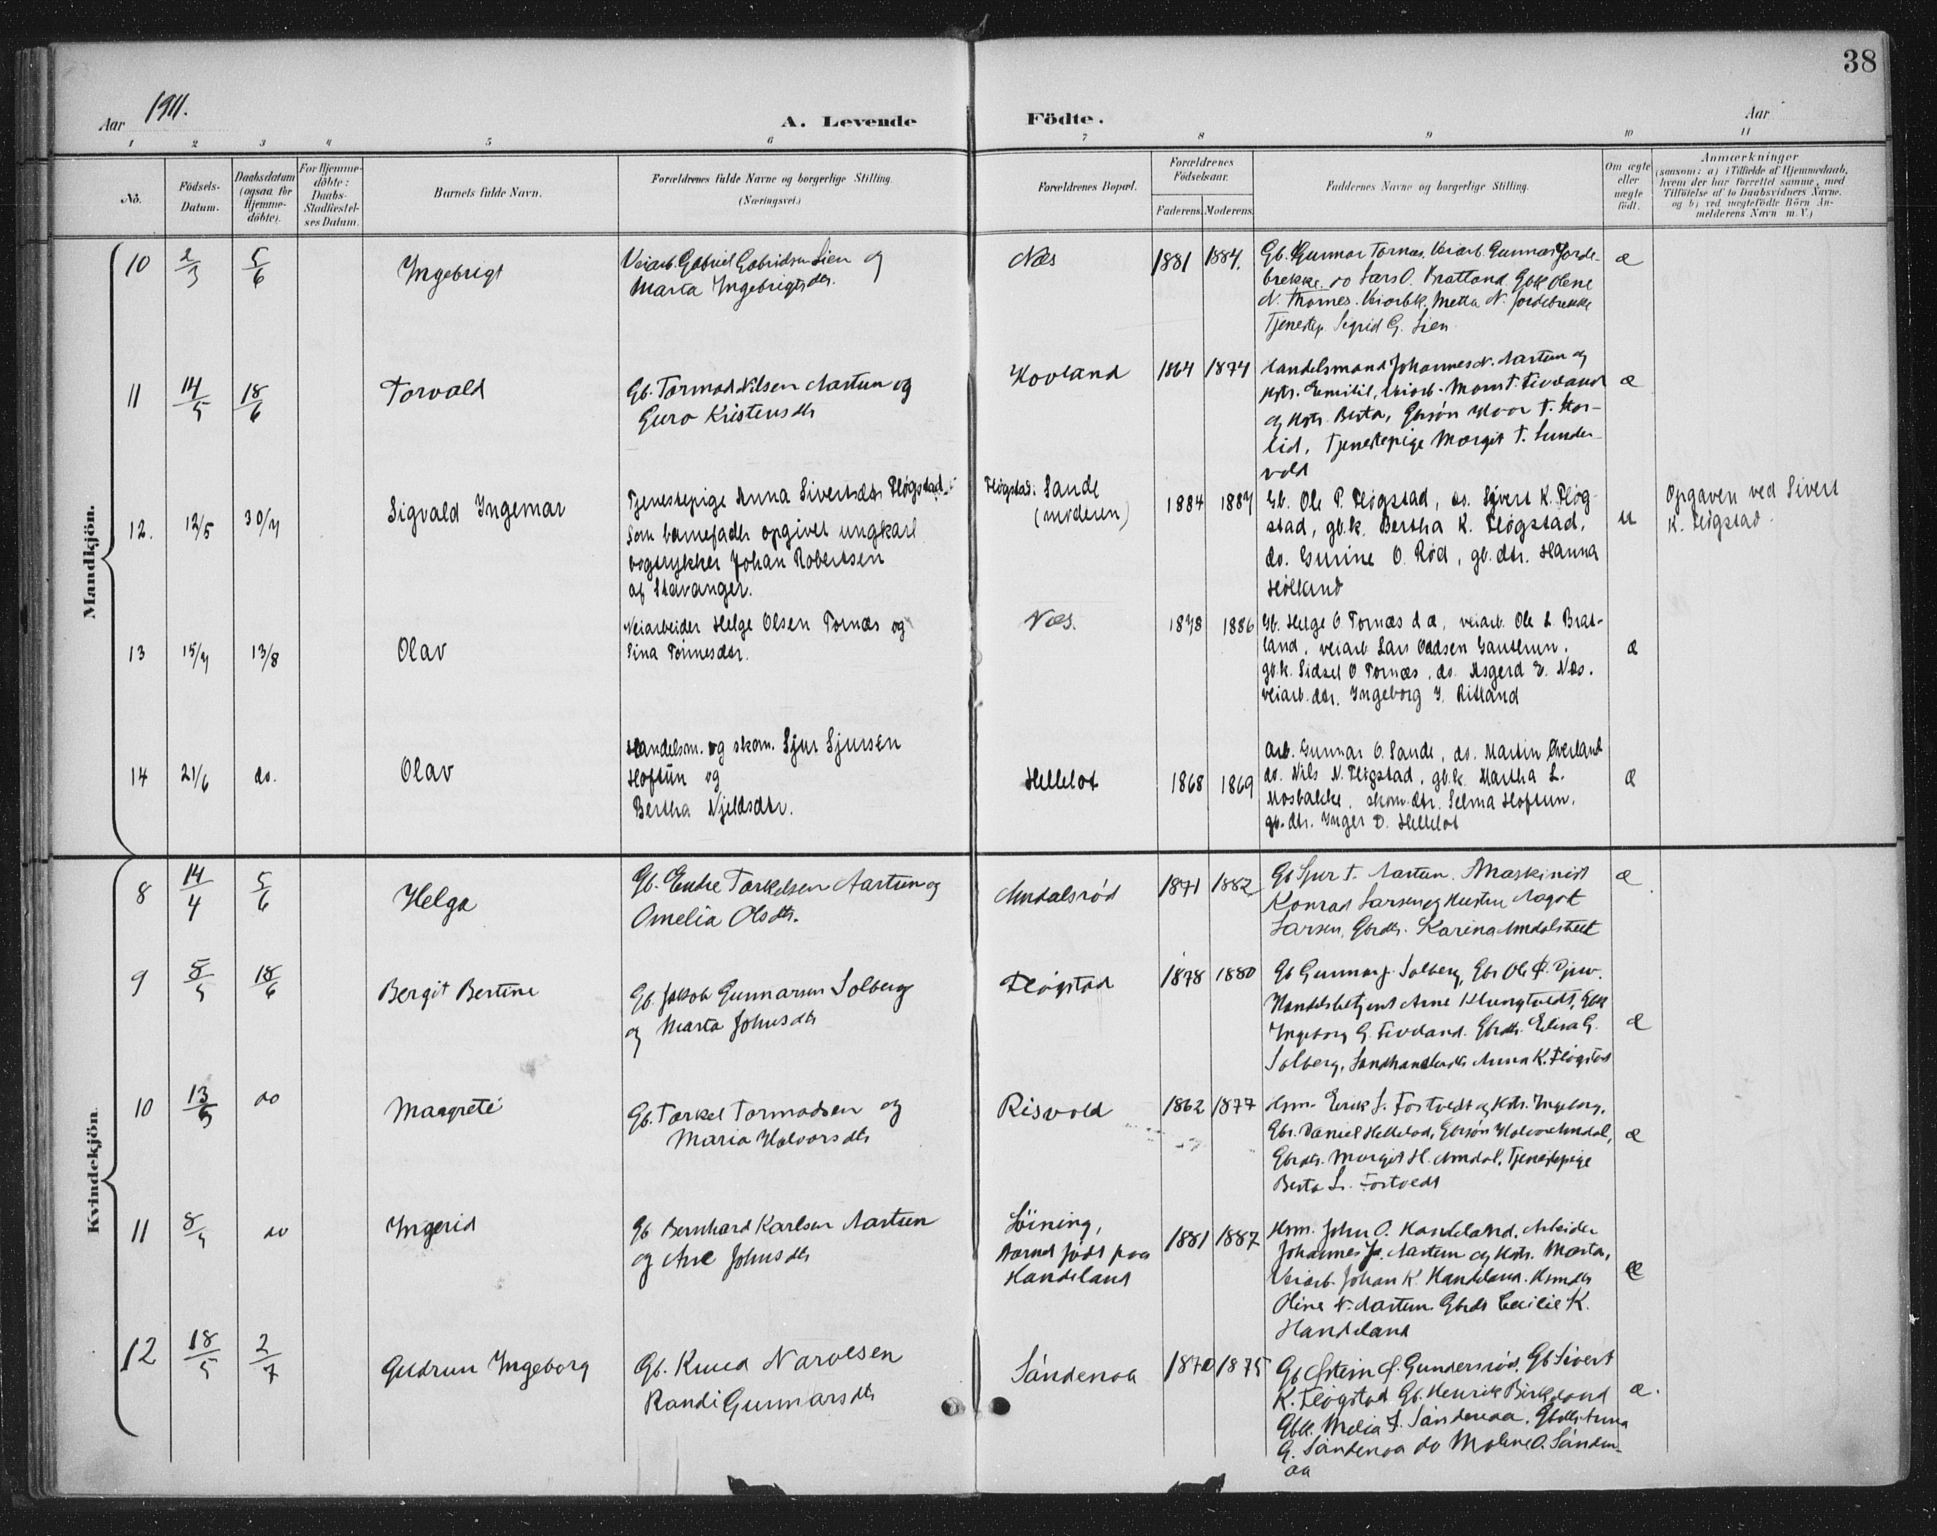 38
Aar 1911.
A. Levende Födte.
Aar
1 2 3 4 5 6 7 8 9 10 11
No.
Födsels-
Datum.
Daabsdatum
(ogsaa for
Hjemme-
döbte).
For Hjemme-
döbte:
Daabs-
Stadfæstel-
ses Datum.
Barnets fulde Navn.
Forældrenes fulde Navne og borgerlige Stilling.
(Næringsvei.)
Forældrenes Bopæl.
Forældrenes
Födselsaar.
Faderens. Moderens.
Faddernes Navne og borgerlige Stilling.
Om ægte
eller
uægte
födt.
Anmærkninger
(saasom: a) i Tilfælde af Hjemmedaab,
hvem der har forrettet samme, med
Tilföielse af to Daabsvidners Navne.
og b) ved uægtefödte Börn An-
melderens Navn m. V.)
Mandkjön.
10 2/3 5/6 Ingebrigt
Veiarb. Gabriel Gabrielsen Lien og
Marta Ingebrigtsdtr.
Næs 1881 1884.
Gb. Gunnar Tornæs. Veiarb. Gunnar Jorde-
brekke. do Lars O. Bratland. Gbk. Olene
N. Thornes. Veiarbk. Metta N. Jordebrekke
Tjenestep. Sigrid G. Lien.
æ
11 14/5 18/6 Torvald
Gb. Tormod Nilsen Aartun og
Guro Kristensdtr
Hovland 1864 1874
Handelsmand Johannes N. Aartun og
Hstr. Emilie, Veiarb. Mons T. Tivland
og Hstr. Berta, Gbrsøn Hvor T. Stor-
lid, Tjenestepige Margit T. Sunder-
vold
æ
12. 12/5 30/7 Sigvald Ingemar
Tjenestepige Anna Sivertsdtr Fløgstad.
Som barnefader opgivet ungkarl
bogtrykker Johan Robertsen
af Stavanger.
Fløgstad: Sande
(moderen)
1884 1887
Gb. Ole P. Fløgstad, do. Sjvert K. Fløg-
stad, gb.k. Bertha K. Fløgstad,
do. Gurine O. Rød, gb.dtr. Hanna
Hølland
u
Opgaven ved Sivert
K. Fløgstad.
13 15/7 13/8 Olav
Veiarbeider Helge Olsen Tornæs og
Sina Tormesdtr.
Næs. 1878 1886
Gb. Helge O Tornæs d.æ, veiarb. Ole L. Brat-
land, veiarb Lars Oddsen Gautetun,
gb.k. Sidsel O. Tornæs, do. Asgerd E. Næs.
veiarb.dtr. Ingeborg J. Ritland
æ
14 21/6 do. Olav
Handelsm. og skom. Sjur Sjursen
Hoftun og
Bertha Njeldsdtr.
Hellelot 1868 1869
Arb. Gunnar O. Sande, do. Martin Øverland
do. Nils N. Fløgstad, gb.k. Martha L.
Mosbakke, skom.dtr. Selma Hoftun,
gb.dtr. Inger D. Helleløt
æ
Kvindekjön.
8 14/4 5/6 Helga
Gb. Endre Torkelsen Aartun og
Omelia Olsdtr.
Amdalsrød 1871 1882
Gb Sjur T. Aartun. Maskinist
Konrad Larsen og Hustru Aagot
Larsen, Gbrdtr. Karina Amdalstveit
æ
9 5/5 18/6 Bergit Bertine
Gb. Jakob Gunnarsen Solberg
og Marta Johnsdtr
Fløgstad 1878 1880
Gb Gunnar J. Solberg, Gbr Ole P. Djuv.
Handelsbetjent Arne Klungtvedt, Gbk
Ingeborg G. Tivland. Gbrdtr. Elisa G.
Solberg, Landhandlerdtr Anna K. Fløgstad
æ
10 13/5 do Maagrete
Gb. Torkel Tormodsen og
Maria Halvorsdtr
Risvold 1862 1877
Hsm. Eerik S. Fostvedt og Hstr. Ingeborg.
Gbr. Daniel Hellelod, Gbrsøn Halvor Amdal,
Gbrdtr. Margit H. Amdal, Tjenestepige
Berta L. Fostvedt
æ
11 8/5 do Ingerid
Gb Bernhard Karlsen Aartun
og Ane Johnsdtr
Løining,
Barnet født paa
Handeland
1881 1887
Hsm. John O. Handeland, Arbeider
Johannes J. Aartun og Hstr. Marta,
Veiarb Johan K. Handeland. Hsmdtr
Oline N. Aartun Gbrdtr Cecilie K.
Handeland
æ
12 18/5 2/7 Gudrun Ingeborg
Gb. Knud Narvesen
Randi Gunnarsdtr
Sandenoa 1870 1875
Gb Østein J. Gundersrød, Gb Sivert
K. Fløgstad Gb. Henrik Birkeland
Gbk. Melia S. Sandenaa, Gbdtr Anna
G. Sandenaa do Moline O. Sanden-
aa
æ.